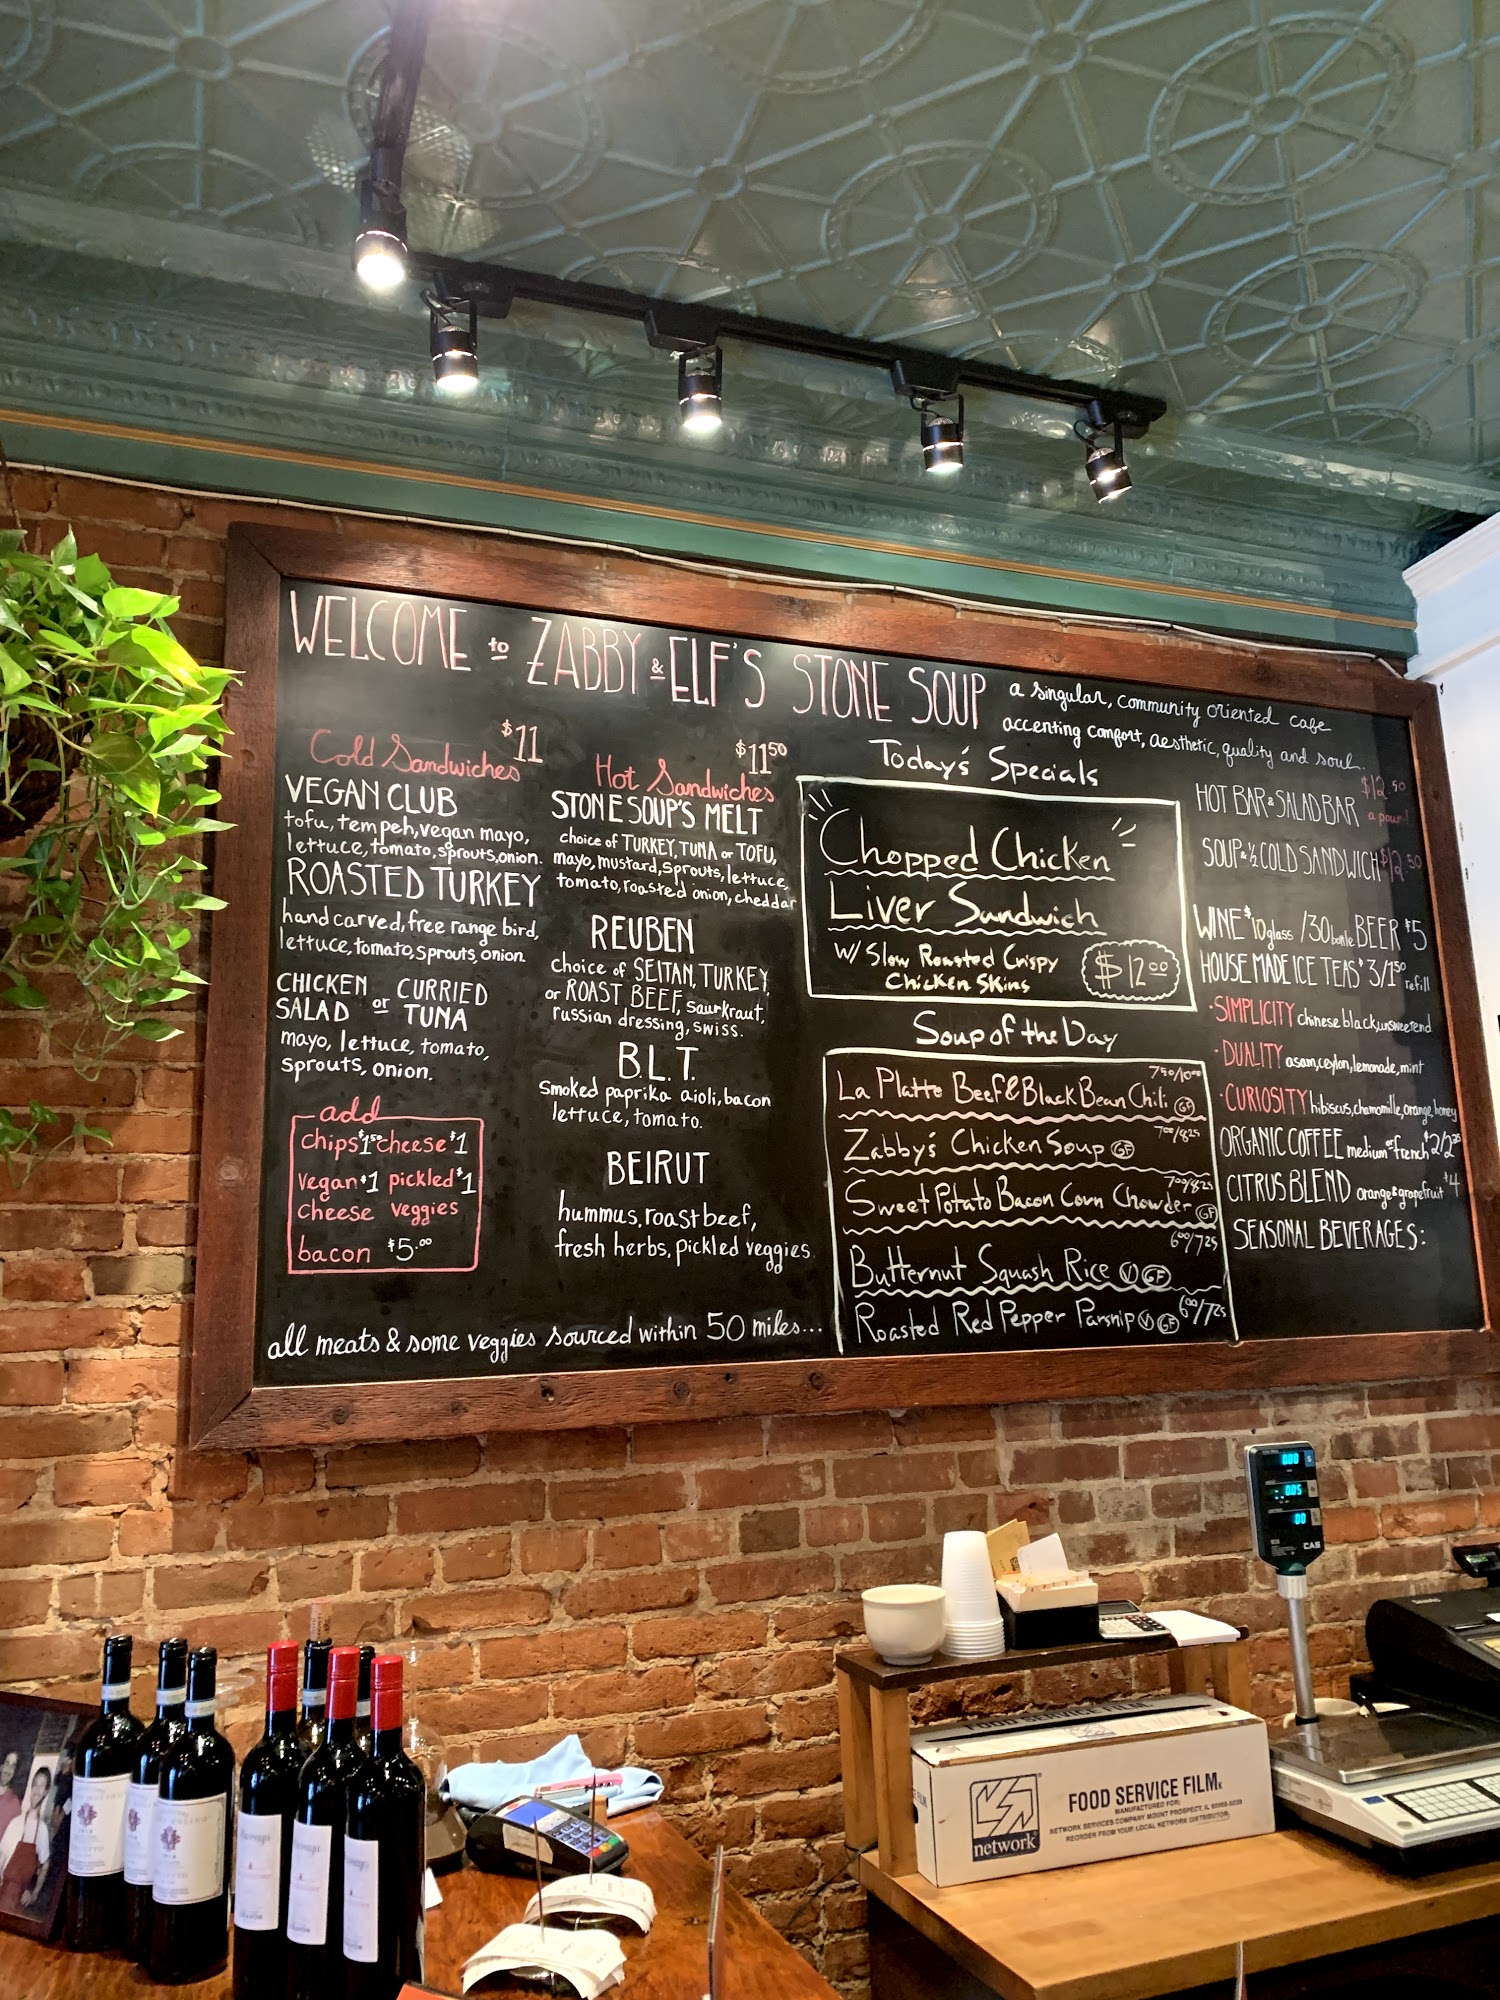 WELCOME to ZABBY & ELF'S STONE SOUP
a singular, community oriented cafe
accenting comfort, aesthetic, quality and soul.
Cold Sandwiches $11
VEGAN CLUB
tofu, tempeh, vegan mayo,
lettuce, tomato, sprouts, onion.
ROASTED TURKEY
hand carved, free range bird,
lettuce, tomato, sprouts, onion.
CHICKEN or CURRIED
SALAD TUNA
mayo, lettuce, tomato,
sprouts, onion.
add
chips $1.50 cheese $1
vegan $1 pickled $1
cheese veggies
bacon $5.00
all meats & some veggies sourced within 50 miles...
Hot Sandwiches $11 50
STONE SOUP'S MELT
choice of TURKEY, TUNA or TOFU,
mayo, mustard, sprouts, lettuce,
tomato, roasted onion, cheddar
REUBEN
choice of SEITAN, TURKEY,
or ROAST BEEF, saurkraut,
russian dressing, swiss.
B.L.T.
smoked paprika aioli, bacon
lettuce, tomato.
BEIRUT
hummus, roast beef,
fresh herbs, pickled veggies.
Today's Specials
Chopped Chicken
Liver Sandwich
W/ Slow Roasted Crispy
Chicken Skins
$12 00
Soup of the Day
La Platte Beef & Black Bean Chili GF 7 50/10 00
Zabby's Chicken Soup GF 7 00/8 25
Sweet Potato Bacon Corn Chowder GF 7 00/8 25
Butternut Squash Rice V GF 6 00/7 25
Roasted Red Pepper Parsnip V GF 6 00/7 25
HOT BAR & SALAD BAR $12.50
SOUP & ½ COLD SANDWICH $12.50
WINE $10 glass /30 bottle BEER $5
HOUSE MADE ICE TEAS $3/1 50 refill
·SIMPLICITY chinese black, unsweetend
·DUALITY asam, ceylon, lemonade, mint
·CURIOSITY hibiscus, chamomille, orange, honey
ORGANIC COFFEE medium or french $2/2 25
CITRUS BLEND orange & grapefruit $4
SEASONAL BEVERAGES:
0.00
0.05
CAS
FOOD SERVICE FILM
MANUFACTURED FOR:
NETWORK SERVICES COMPANY MOUNT PROSPECT, IL
REORDER FROM YOUR LOCAL NETWORK DISTRIBUTOR
network